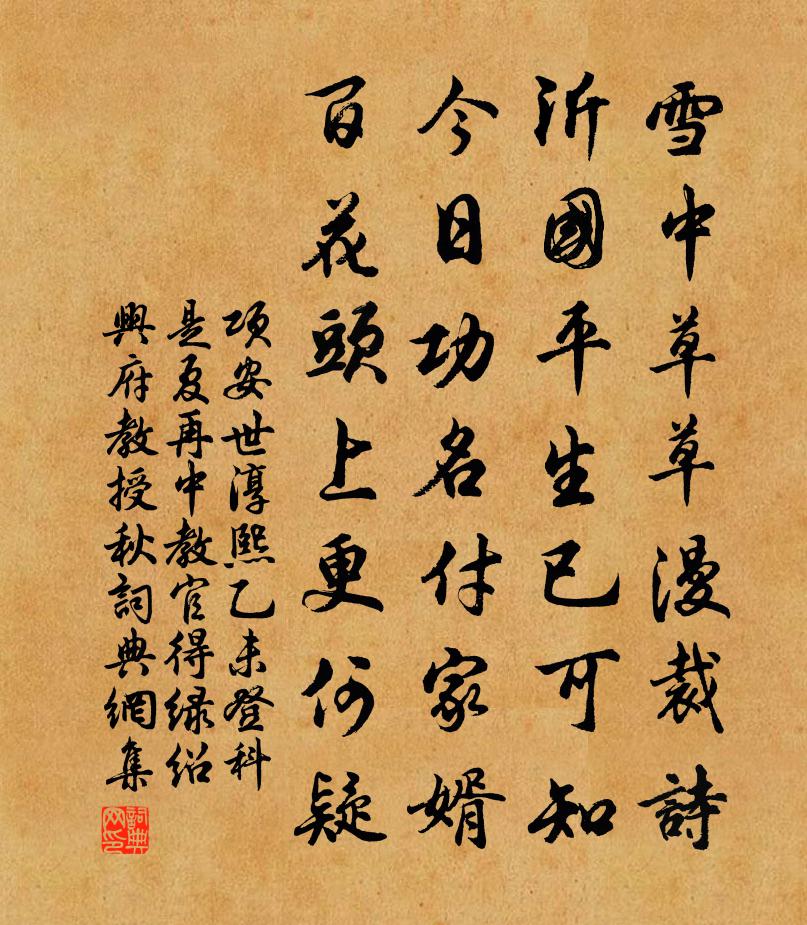 雪中草草漫裁詩
沂國平生已可知
今日功名付家婿
百花頭上更何疑
項安世淳熙乙未登科
是夏再中教官得緑紹
興府教授秋詞典網集
詞典网印